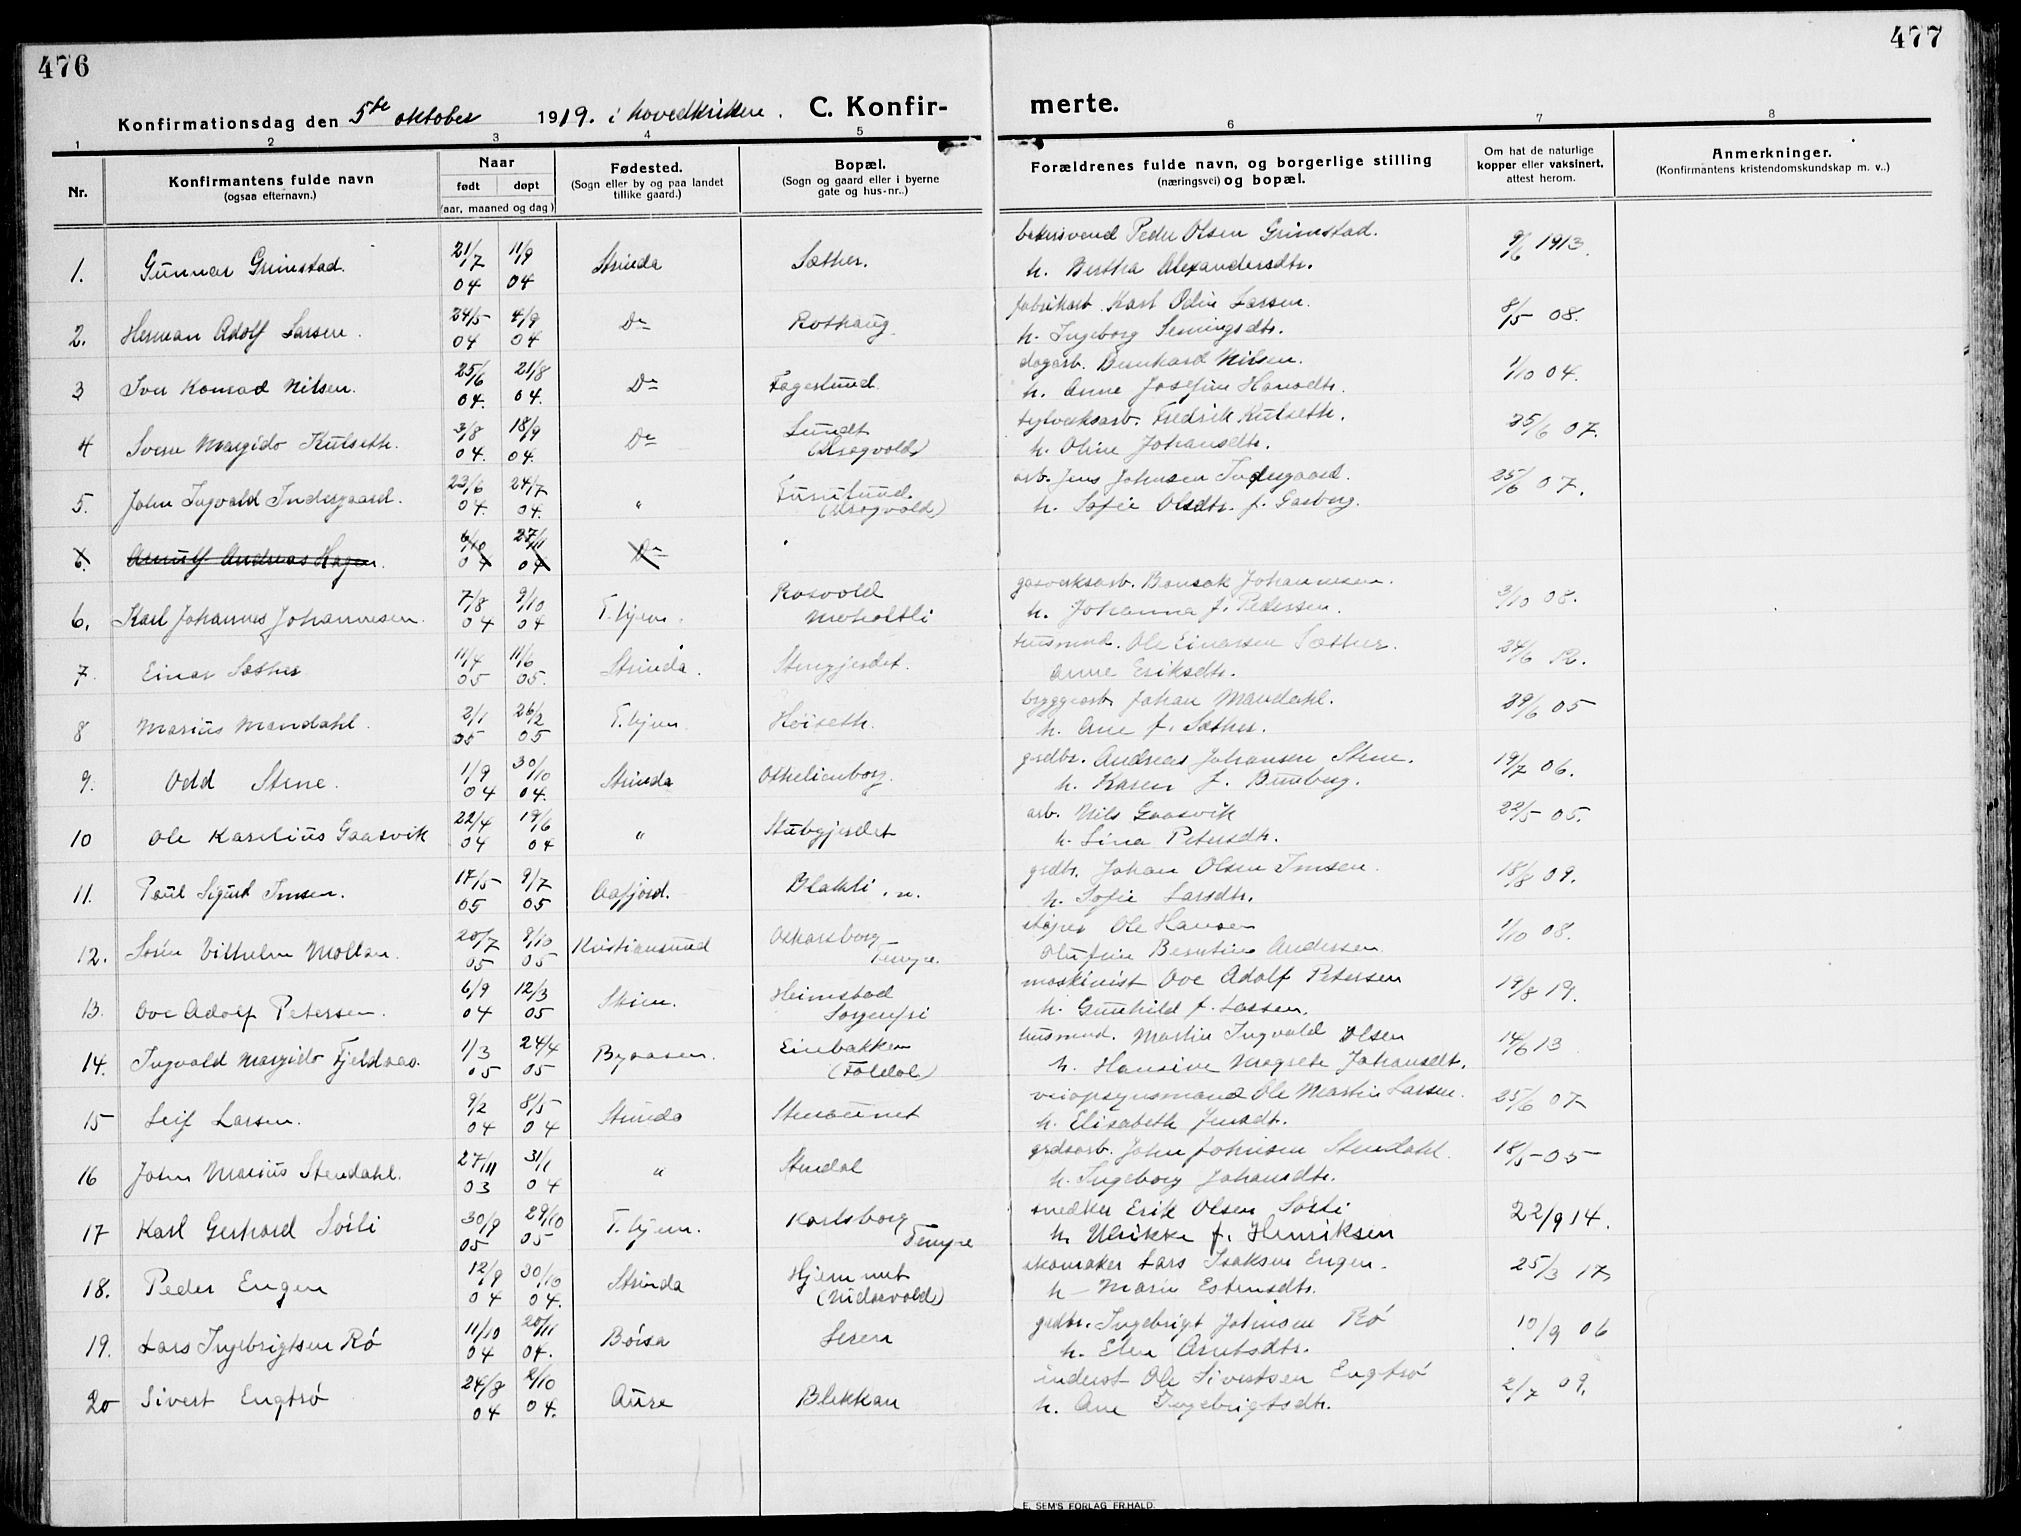 476
477
Konfirmationsdag den 5te oktober 1919. i hovedkirken. C. Konfir-
merte.
1 2 3 4 5 6 7 8
Nr.
Konfirmantens fulde navn
(ogsaa efternavn.)
Naar
født døpt
(aar, maaned og dag)
Fødested.
(Sogn eller by og paa landet
tillike gaard.)
Bopæl.
(Sogn og gaard eller i byerne
gate og hus-nr..)
Forældrenes fulde navn, og borgerlige stilling
(næringsvei) og bopæl.
Om hat de naturlige
kopper eller vaksinert,
attest herom.
Anmerkninger.
(Konfirmantens kristendomskundskap m. v..)
bakersvend Peder Olsen Grimstad.
1. Gunnar Grimstad. 21/7 11/9 Strinda Sæther. 9/6 1913
04 04 h. Bertha Alexandersdtr.
fabrikarb. Karl Odin Larsen.
2. Herman Adolf Larsen. 24/5 4/9 Do Rothaug 8/5 08.
04 04 h. Ingeborg Semingsdtr.
dagarb. Bernhard Nilsen.
3 Iver Konrad Nilsen. 25/6 21/8 Do Fagerlund. 1/10 04.
04. 04. h. Anne Josefine Hansdtr.
teglverksarb. Fredrik Kulseth.
4 Sverre Margido Kulseth. 3/8 18/9 Do Lundt 25/6 07.
04. 04. (Kragvold) h. Oline Johansdtr.
arb. Jens Johnsen Indergaard.
5. John Ingvald Indergaard. 23/6 24/7 " Furulund 25/6 07.
04. 04. (Kragvold) h. Sofie Olsdtr. f. Gasberg.
6. Arnulf Andreas Hagen. 6/10 27/11 Do
04 04
gasverksarb. Bensak Johannesen.
6. Karl Johannes Johannesen. 7/8 9/10 T.hjem. Rosvold 3/10 08.
04 04 Moholtli h. Johanna f. Pedersen.
husmnd. Ole Einarsen Sæther.
7. Einar Sæther 11/4 11/6 Strinda. Stengjerdet. 24/6 12.
05 05. Anne Eriksdtr.
bryggearb. Johan Mandahl.
8 Marius Mandahl. 2/1 26/2 T.hjem Høiseth. 29/6 05
05 05 h. Ane f. Sæther.
grdbr. Andreas Johansen Stene.
9. Odd Stene. 1/9 30/10 Strinda Othelienborg. 19/7 06.
04 04. h. Karen f. Bumberg.
arb. Nils Gaasvik
10 Ole Karelius Gaasvik 22/4 19/6 " Stubgjerdet 22/5 05.
04 04 h. Lina Petersdtr.
grdbr. Johan Olsen Imsen.
11. Paul Sigurd Imsen. 17/5 9/7 Aafjord. Blakli. n. 18/8 09.
05 05 h. Sofie Larsdtr.
Ole Hansen
12. Sørin Vilhelm Mollan. 20/7 9/10 Kristiansund Oskarsborg 1/10 08.
05 05 Tempe. Olufine Berntine Andersen.
maskinist Ove Adolf Petersen
13. Ove Adolf Petersen. 6/9 12/3 Skien. Heimstad 19/8 19.
04 05 Sorgenfri h. Gunhild f. Larsen.
husmnd. Martin Ingvald Olsen
14. Ingvald Margido Fjeldaas. 1/3 24/4 Byaasen. Einbakken 14/6 13
05 05 (Foldal) h. Hansine Magrete Johansdtr.
veiopsynsmand Ole Martin Larsen.
15 Leif Larsen. 9/2 8/5 Strinda Stenaunet 25/6 07
04 04 h. Elisabeth Jensdtr.
grdsarb. John Johnsen Stendahl.
16 John Marius Stendahl. 27/11 31/1 " Stendal 18/5 05
03 04 h. Ingeborg Johansdtr.
snedker Erik Olsen Sørli
17 Karl Gerhard Sørli 30/9 29/10 T.hjem. Karlsborg 22/9 14.
05 05 Tempe h. Ulrikke f. Henriksen
skomaker Lars Isaksen Engen.
18. Peder Engen 12/9 30/10 Strinda Hjemmet 25/3 17,
04 04. (Nidarvold) h. Marie Estensdtr.
grdbr. Ingebrigt Johnsen Rø
19. Lars Ingebrigtsen Rø 11/10 20/11 Børsa Leren 10/9 06
04 04. h. Elen Arntsdtr.
inderst Ole Sivertsen Engtrø
20 Sivert Engtrø 24/8 2/10 Aure Blekkan 2/7 09.
04 04. h. Ane Ingebrigtsdtr.
E. SEM'S FORLAG FR.HALD.